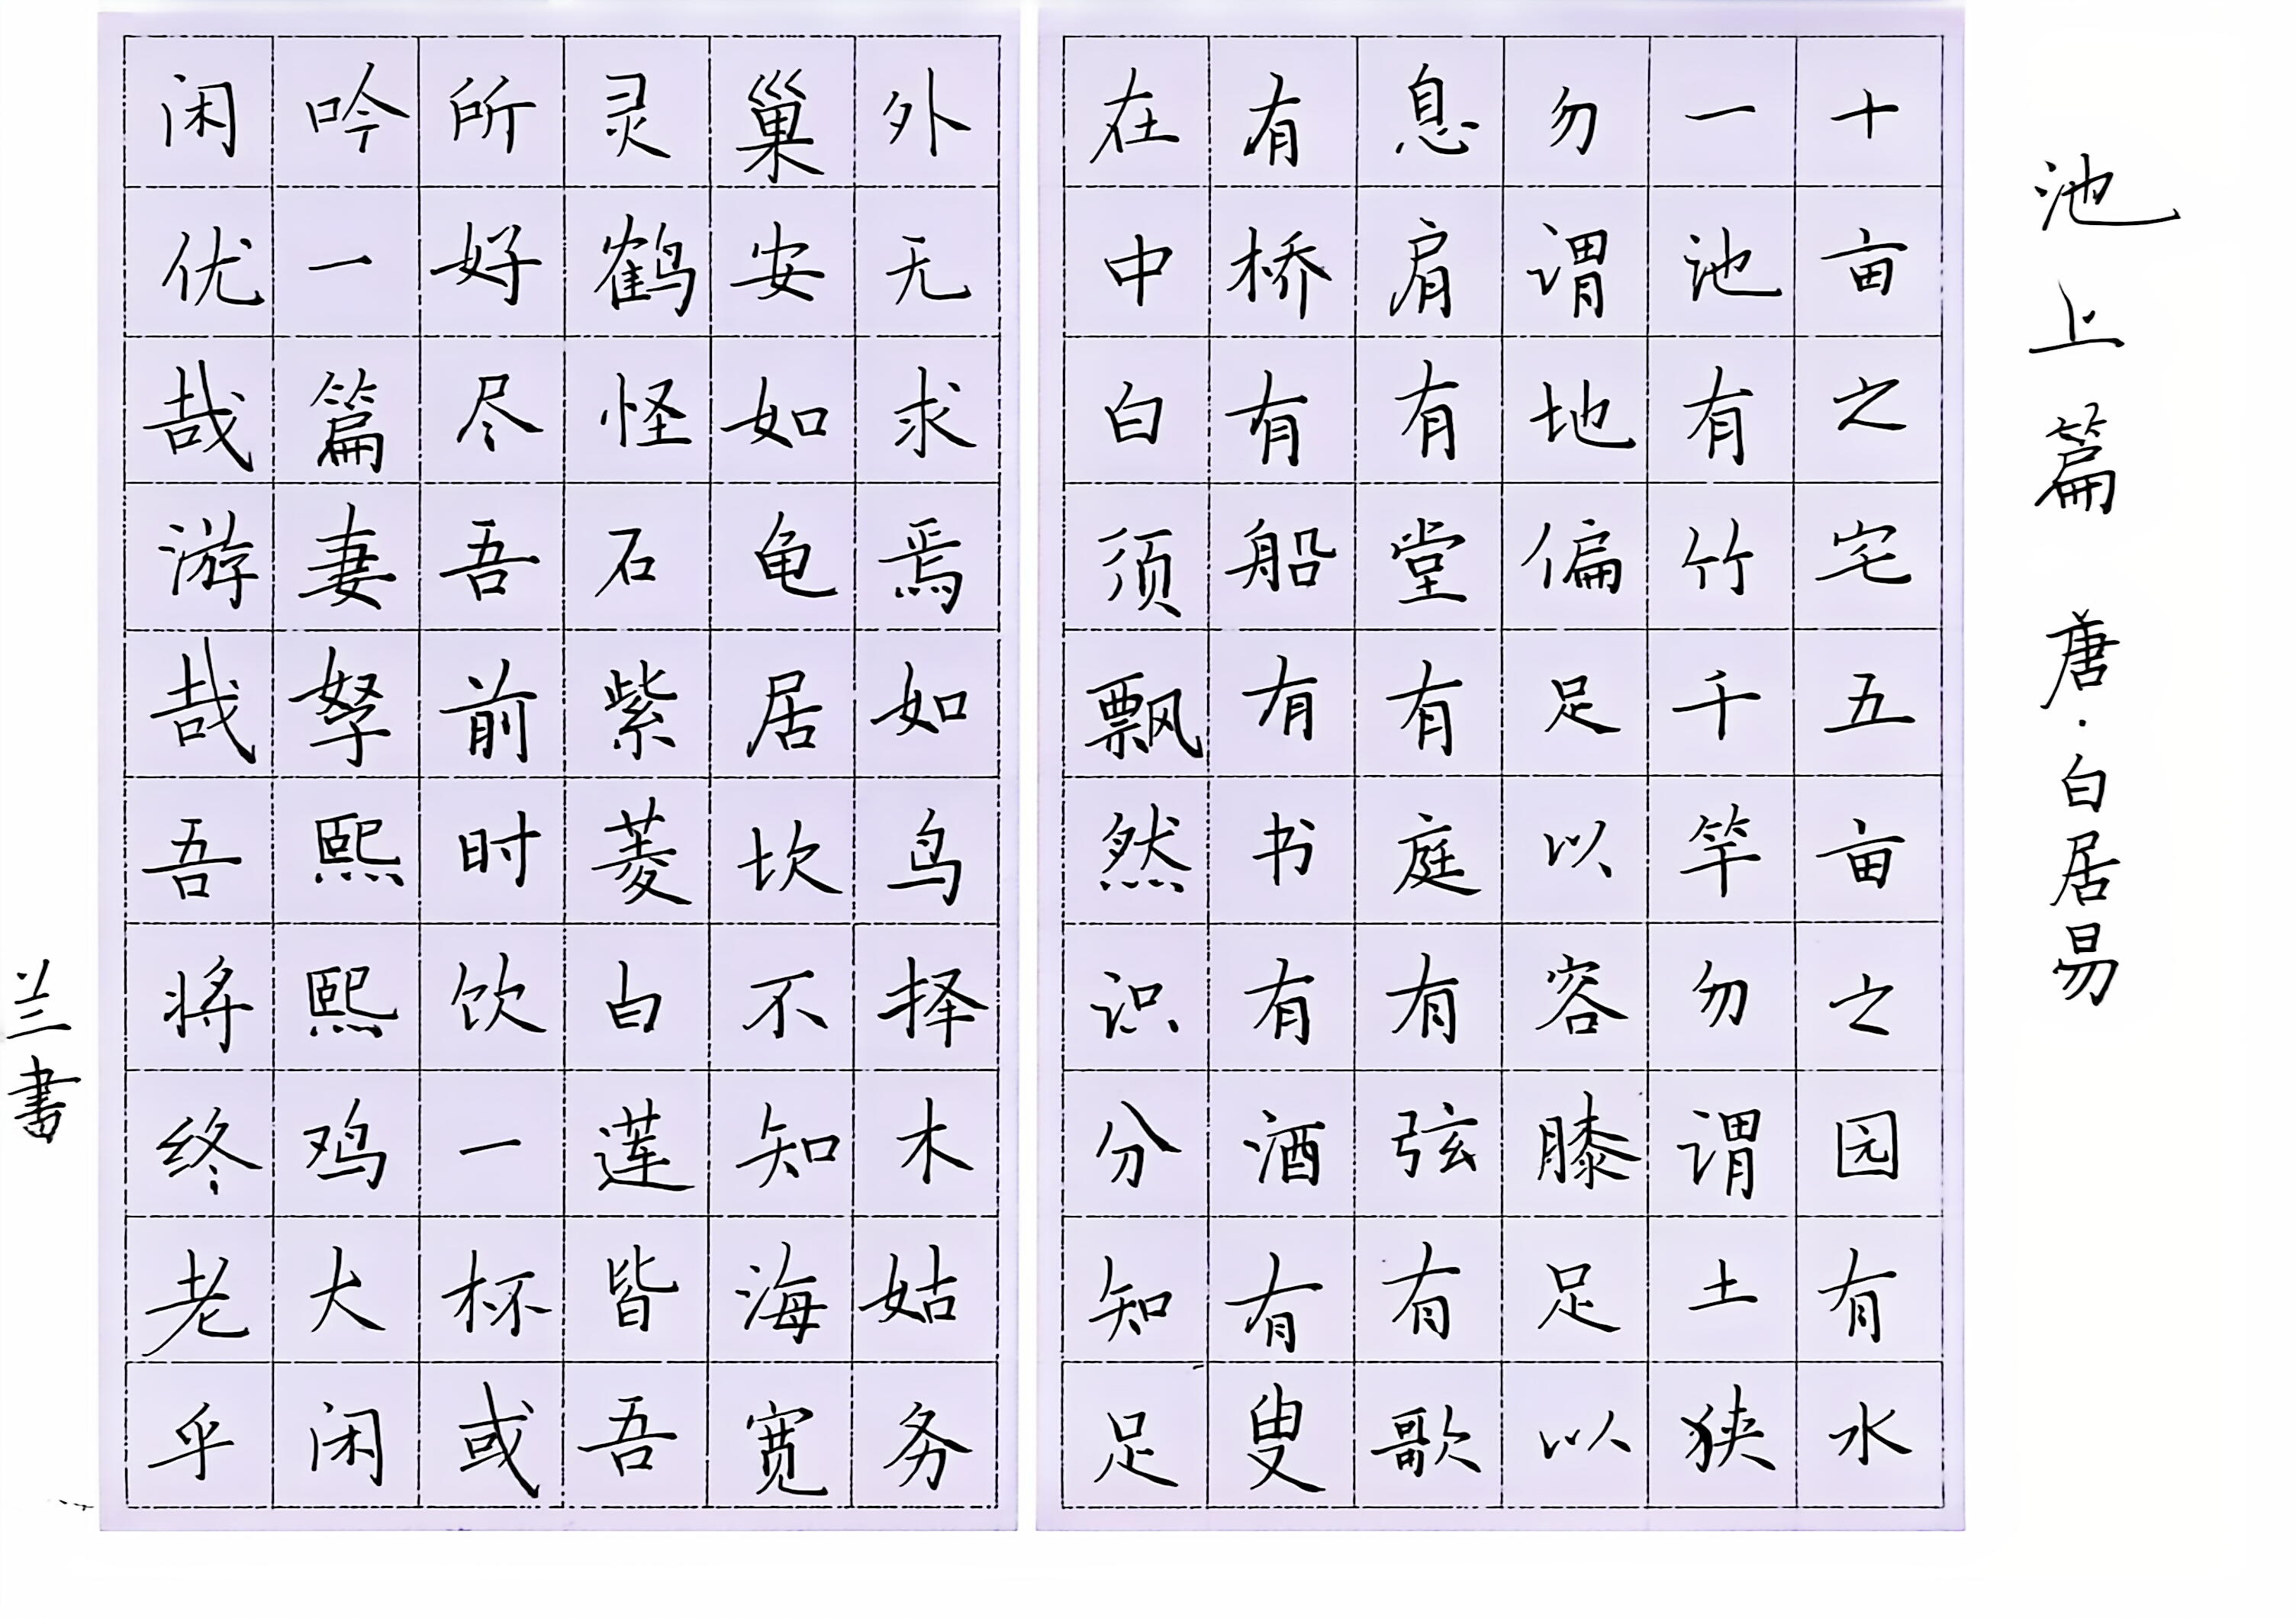 池上篇 唐·白居易
十亩之宅五亩之园有水
一池有竹千竿勿谓土狭
勿谓地偏足以容膝足以
息肩有堂有庭有弦有歌
有桥有船有书有酒有叟
在中白须飘然识分知足
外无求焉如鸟择木姑务
巢安如龟居坎不知海宽
灵鹤怪石紫菱白莲皆吾
所好尽吾前时饮一杯或
吟一篇妻孥熙熙鸡犬闲
闲优哉游哉吾将终老乎
兰書